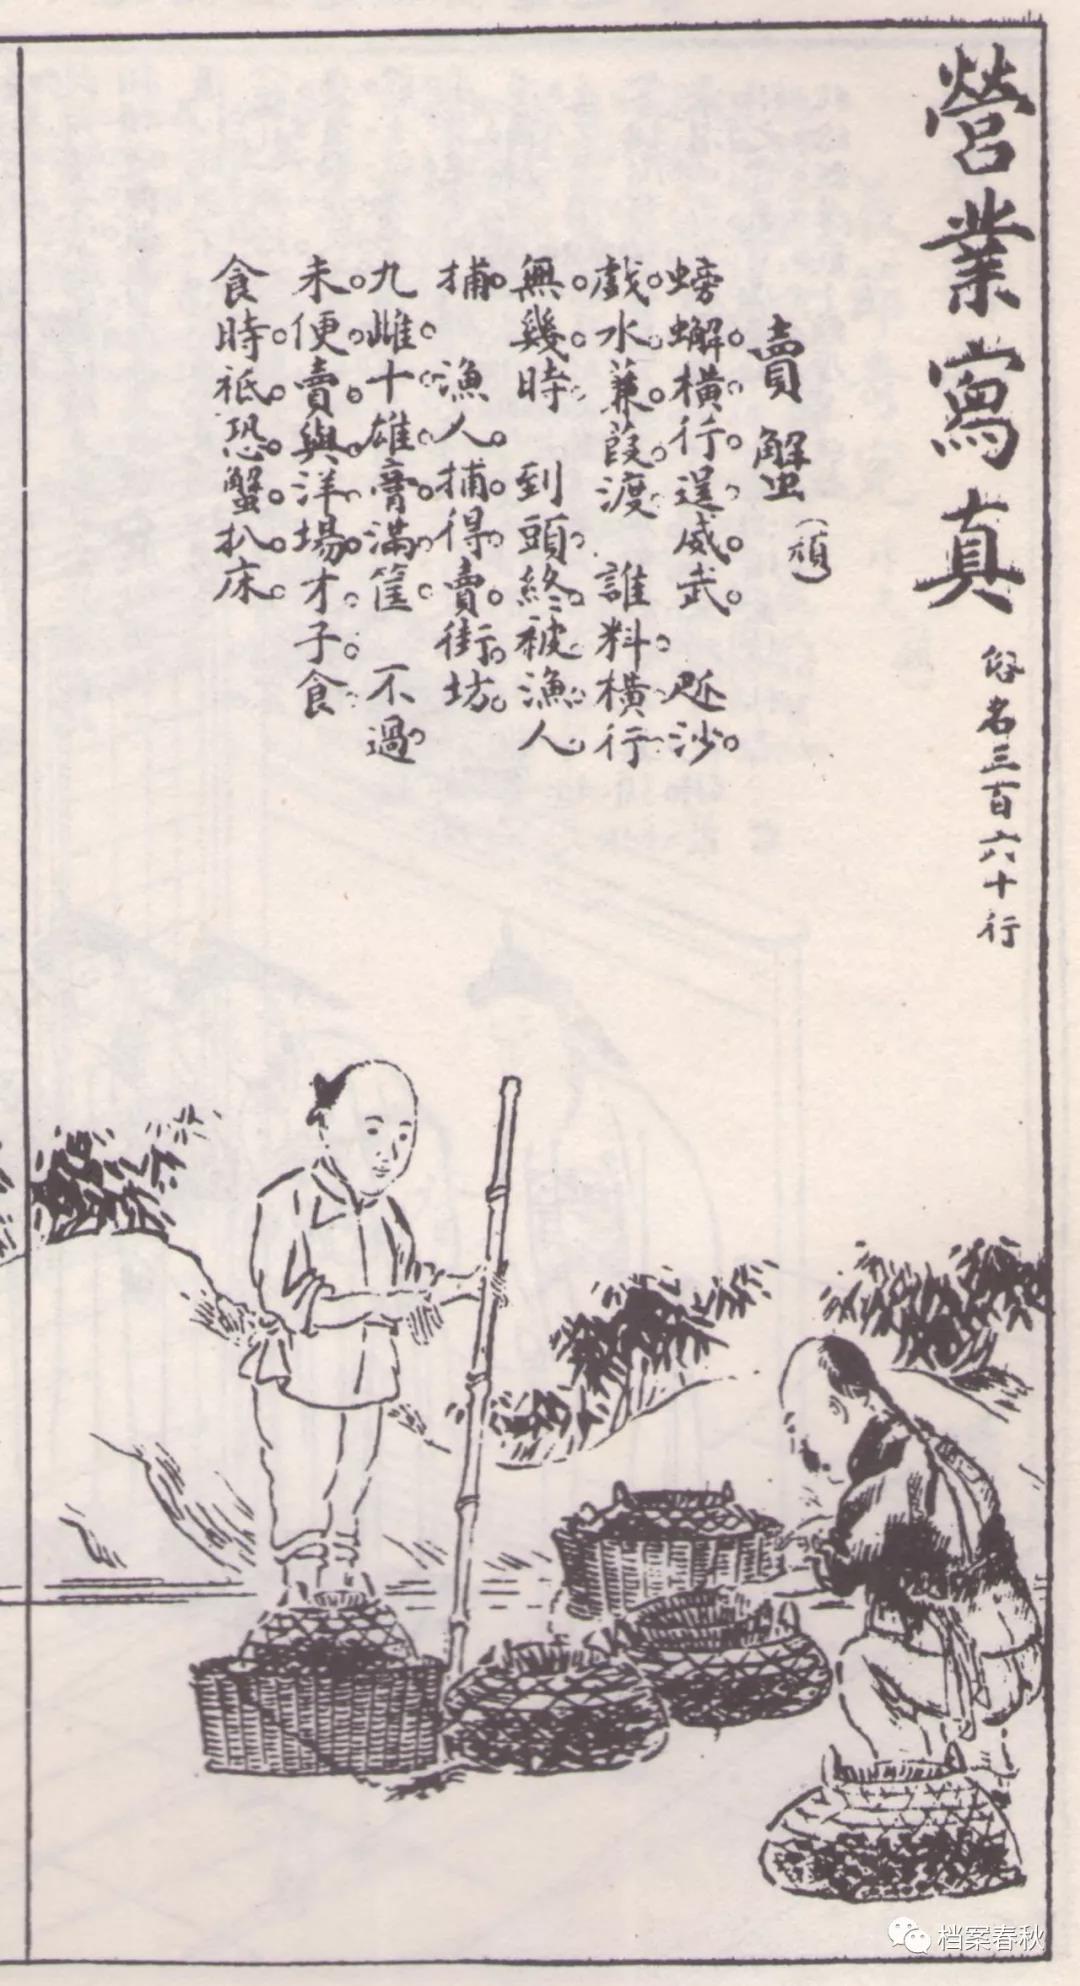 營業寫真
俗名三百六十行
賣蟹
(頑)
螃蠏橫行逞威武 沙
戲水蒹葭渡 誰料橫行
無幾時 到頭終被漁人
捕 漁人捕得賣街坊
九雌十雄膏滿筐 不過
未便賣與洋場才子食
食時祗恐蟹扒床
档案春秋